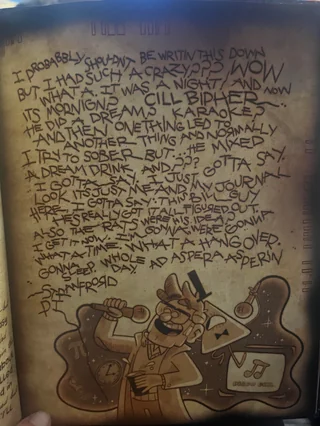 I PROBABBLY SHOULDNT BE WRITIN THIS DOWN
BUT I HAD SUCH A CRAZY??? WOW
WHAT A. IT WAS A NIGHT AND NOW
ITS MORNIGN? CILL BIPHER
HE DID A DREAM? KARAOKE?
AND THEN ONETHING LED TO
ANOTHER THING AND NORMALLY
I TRY TO SOBER BUT HE MIXED
A DREAM DRINK, AND??? GOTTA SAY.
I GOTTA SAY. I JUST GOTTA
LOOK ITS JUST ME AND MY JOURNAL
HERE I GOTTA SAY. THIS BILL GUY
HES REALLY GOT IT ALL FIGURED OUT.
ALSO THE RATS WERE HIS IDEA?
I GET IT NOW
WHAT A TIME. WHAT A HANGOVER.
GONNA SLEEP. WHOLE AD ASPERA ASPERIN
DAY.
~STANNFRORD